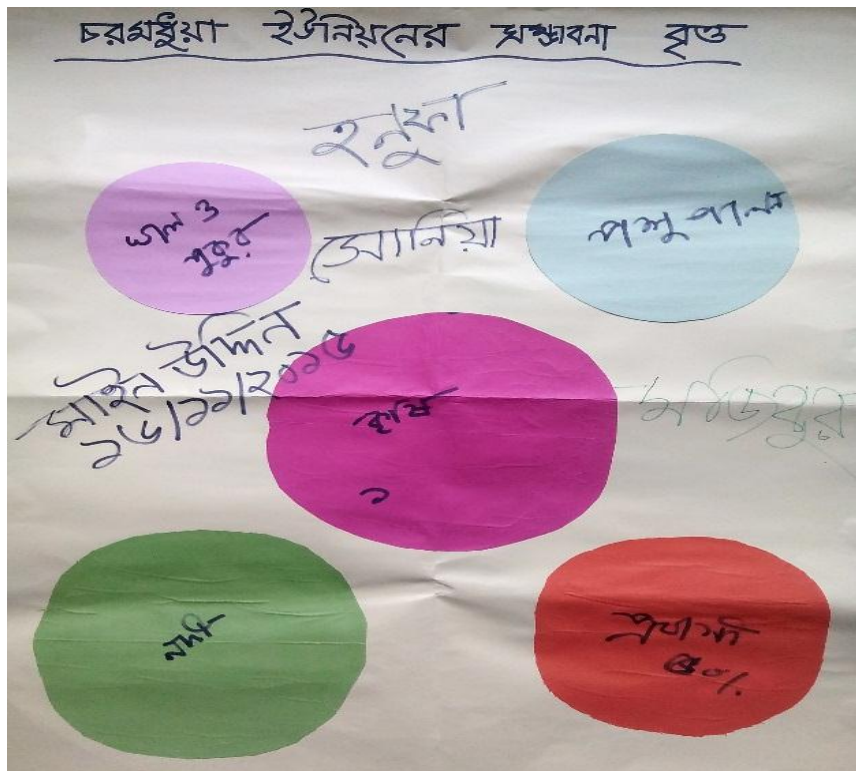 চরমধুয়া ইউনিয়নের সম্ভাবনা বৃত্ত
হনুফা
খাল ও
পুকুর
সোনিয়া
পশু পালন
মাইন উদ্দিন
১৬/১১/২০১৫
কৃষি
১
মজিবুর
নদী
প্রবাসী
৫০%